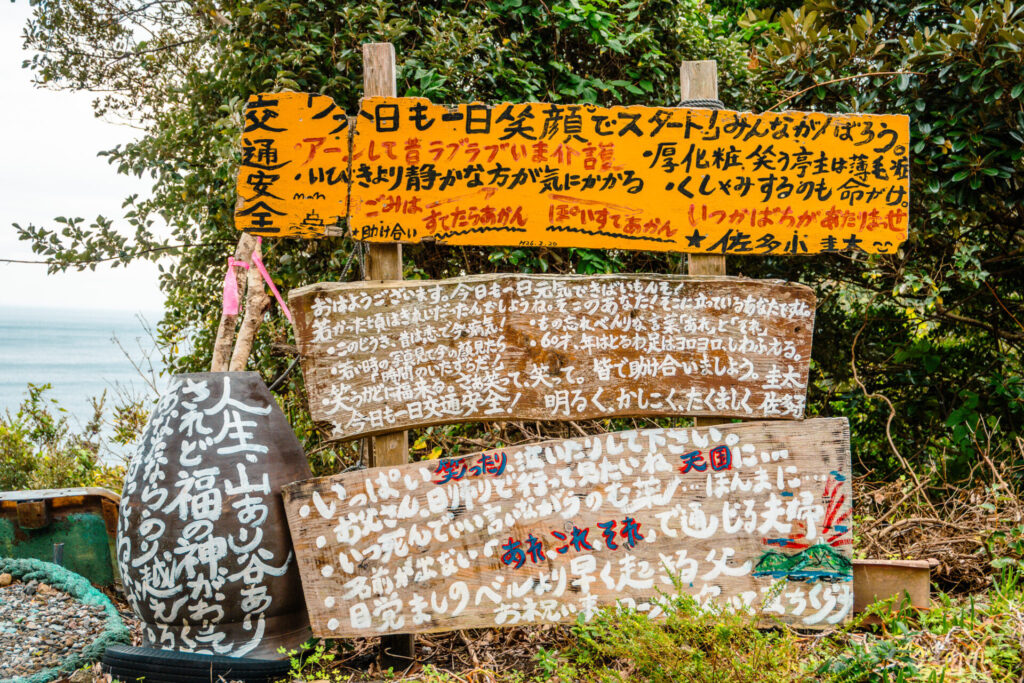 交通安全
今日も一日笑顔でスタート!みんながんばろう。
・アーンして昔ラブラブいま介護
・厚化粧、笑う亭主は薄毛症
・いびきより静かな方が気にかかる
・くしゃみするのも命がけ。
ごみは すてたらあかん ぽいすてあかん いつかばちがあたりまっせ
★助け合い
M26.2.20
★佐多小 圭太
おはようございます。今日も一日元気できばいもんそ!
若かった頃はきれいだったんでしょうね。そこのあなた!そこに立っているあなたですよ。
・このどうき、昔は恋で今病気!
・もの忘れべんりな言葉「あれ」と「それ」
・若い時の写真見て今の顔見たら
時間のいたずらだ!
・60才、年はとるわ足はヨロヨロ、しわふえる。
笑うかどに福来る。さあ笑って、笑って。皆で助け合いましょう。圭太
★今日も一日交通安全! 明るく、かしこく、たくましく 佐多
・いっぱい笑ったり泣いたりして下さい。
・お父さん、日帰りで行って見たいね天国に…
・いつ死んでいい言いながらのむ薬!…ほんまに…
・名前が出ない「あれ、これ、それ」で通じる夫婦
・目覚ましのベルより早く起きる父
人生、山あり谷あり
されど福の神がおって